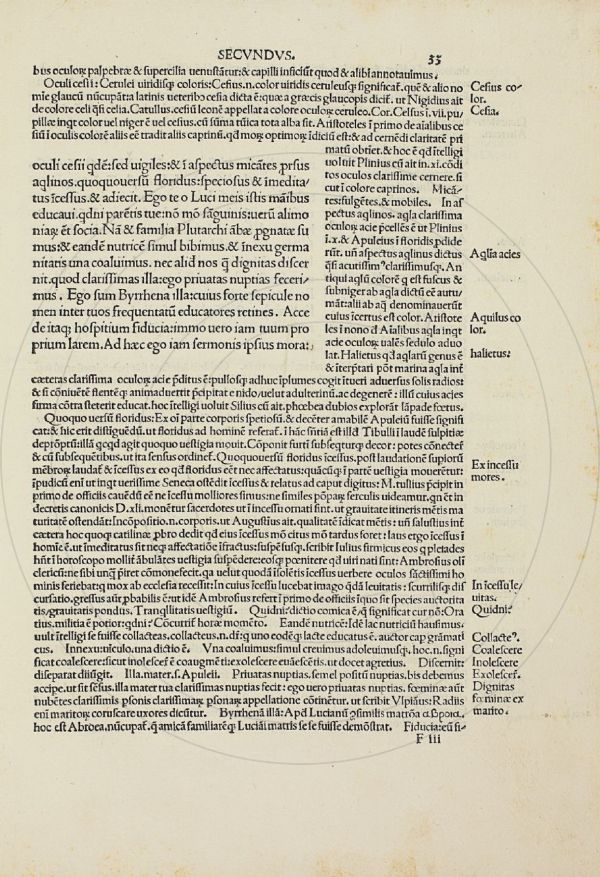 SECVNDVS.
33
bus oculoꝝ palpebræ & supercilia uenustãtur: & capilli inficiũt quod & alibi annotauimus.
Oculi cesii: Cerulei uiridisqꝫ coloris: Cesius.n. color uiridis ceruleusqꝫ significat̃. quẽ & alio no
mie glaucũ nũcupãt: a latinis ueteribo cesia dicta ẽ: quæ a græcis glaucopis dicit̃. ut Nigidius ait
de colore celi q̃si celia. Catullus. cesiũ leonẽ appellat a colore oculoꝝ ceruleo. Cor. Celsus ĩ.vii. pu/
pillæ inqt color uel niger ẽ uel cesius. cũ sũma tũica tota alba sit. Aristoteles ĩ primo de aĩalibus ce
siũ ĩ oculis colorẽ aliis eẽ tradit aliis caprinũ. qd̃ moꝝ optimoꝝ ĩdiciũ est: & ad cernẽdi claritatẽ pri
matũ obtiet. & hoc ẽ qd̃ ĩtelligi
uoluit Plinius cũ ait in.xi. cõdi
tos oculos clarissime cernere. si
cut ĩ colore caprinos. Micã/
tes: fulgẽtes, & mobiles. In as
pectus aqlinos. aqla clarissima
oculoꝝ acie p̃cellẽs ẽ ut Plinius
ĩ.x. & Apuleius ĩ floridis p̃dide
rũt. uñ aspectus aqlinus dictus
q̃si acutissimꝰ clarissimusqꝫ. An
tiqui aqlũ colorẽ q est fuscus &
subniger ab aqla dictũ eẽ autu/
mãt: alii ab aq̃ denominauerũt
cuius icertus est color. Aristote
les ĩ nono d̃ Aĩalibus aqla inqt
acie oculoꝝ ualẽs sedulo aduo
lat. Halietus qd̃ aqlarũ genus ẽ
& ĩterp̃tari põt marina aqla int̃
oculi cesii qdẽ: sed uigiles: & ĩ aspectus micãtes p̱rsus
aqlinos. quoquouersũ floridus: speciosus & ĩmedita/
tus ĩcessus. & adiecit. Ego te o Luci meis istis mãibus
educaui. qdni parẽtis tuæ: nõ mõ sãguinis: uerũ alimo
niaꝝ et socia. Nã & familia Plutarchi ãbæ p̱gnatæ su
mus: & eandẽ nutricẽ simul bibimus. & ĩnexu germa
nitatis una coaluimus. nec alid nos q̃ dignitas discer
nit. quod clarissimas illa: ego priuatas nuptias feceri/
mus. Ego sum Byrrhena illa: cuius forte sepicule no
men inter tuos frequentatũ educatores retines. Acce
de itaqꝫ hospitium fiducia: immo uero iam tuum pro
prium larem. Ad hæc ego iam sermonis ipsius mora:
cæteras clarissima oculoꝝ acie p̃ditus ẽ: pullosqꝫ adhuc ĩplumes cogit ĩtueri aduersus solis radios:
& si cõniuẽtẽ flentẽqꝫ animaduertit p̃cipitat e nido, uelut adulterinũ. ac degenerẽ: illũ cuius acies
firma cõtra steterit educat. hoc ĩtelligi uoluit Silius cũ ait. phœbea dubios explorãt lãpade fœtus.
Quoquo uersũ floridus: Ex oĩ parte corporis speciosũ: & decẽter amabilẽ Apuleiũ fuisse signifi
cat: & hic erit distĩguẽdũ. ut floridus ad hominẽ referat̃. ĩ hãc sniã est illd̃ Tibulli ĩ laudẽ sulpitiæ
deprõptũ: illã qcqd agit quoquo uestigia mouit. Cõponit furti subsequiturqꝫ decor: potes cõnectef̃
& cũ subsequẽtibus. ut ita sensus ordinet̃. Quoquouersũ floridus ĩcessus. post laudationẽ supioꝝ
mẽbroꝝ laudat̃ & ĩcessus ex eo qd̃ floridus eẽt nec affectatus: quacũqꝫ ĩ partẽ uestigia moueretur:
ĩpudicũ eni ut inqt uerissime Seneca ostẽdit ĩcessus & relatus ad caput digitus: M. tullius p̃cipit in
primo de officiis cauẽdũ eẽ ne ĩcessu molliores simus: ne similes põpaꝝ ferculis uideamur. qñ et in
decretis canonicis D. xli. monẽtur sacerdotes ut ĩ ĩncessu ornati sint. ut grauitate itineris mẽtis ma
turitatẽ ostẽdãt: Incõpositio.n. corporis, ut Augustius ait. qualitatẽ ĩdicat mẽtis: uñ salustius int̃
cætera hoc quoqꝫ catilinæ p̱bro dedit qd̃ eius ĩcessus mõ citus mõ tardus foret: laus ergo ĩcessus ĩ
homie ẽ. ut ĩmeditatus sit neqꝫ affectatiõe ĩfractus: suspẽsusqꝫ. scribit Iulius firmicus eos q pleiades
hñt ĩ horoscopo mollit̃ ãbulãtes uestigia suspẽdere: eosqꝫ pœnitere qd̃ uiri nati sint: Ambrosius oli
clericũ: ne sibi unq̃ p̃iret cõmonefecit. qa uelut quodã ĩsolẽtis ĩcessus uerbere oculos sãctissimi ho
minis feriebat: qꝫ mox ab ecclesia recessit: In cuius ĩcessu lucebat imago qdã leuitatis: scurrilisqꝫ dĩ
cursatio. gressus aut p̱babilis ẽ: ut idẽ Ambrosius refert ĩ primo de officiis ĩ quo sit species auctorita
tis, grauitatis pondus, Tranqllitatis uestigiũ. Quidni: dictio comica ẽ, qꝫ significat cur nõ: Ora
tius. militia ẽ potior: qdni: Cõcurrit̃ horæ momẽto. Eandẽ nutricẽ: Idẽ lac nutriciũ hausimus.
uult ĩtelligi se fuisse collacteas. collacteus.n. df̃: q uno eodẽqꝫ lacte educatus ẽ. auctor cap gramati
cus. Innexu: uĩculo. una dictio ẽ. Vna coaluimus: simul creuimus adoleuimusqꝫ. hoc.n. signi
ficat coalescere: sicut inolescef̃ ẽ coaugmẽt: exolescere euãescẽtis. ut docet agretius. Discernit:
diseparat diiũgit. Illa. mater.s. Apuleii. Priuatas nuptias. semel positũ nuptias. bis debemus
accipe. ut sit sẽsus. illa mater tua clarissimas nuptias fecit: ego uero priuatas nuptias. fœminæ aut
nubẽtes clarissimis p̱sonis clarissimaꝝ p̱sonaꝝ appellatione cõtinẽtur. ut scribit Vlpiãus: Radiis
eni maritoꝝ coruscare uxores dicũtur. Byrrhenã illã: Apd̃ Lucianũ cõsimilis matrõa αβροια.
hoc est Abroea, nũcupat̃. q̃ amicã familiarẽqꝫ Luciãi matris se se fuisse demõstrat. Fiducia: eũ si/
F iii
Cesius co/
lor.
Cesia.
Aqlia acies
Aquilus co
lor.
halietus:
Ex incessu
mores.
In icessu le/
uitas.
Quidni:
Collacteꝰ.
Coalescere
Inolescere
Exolescef̃.
Dignitas
fœminæ ex
marito.